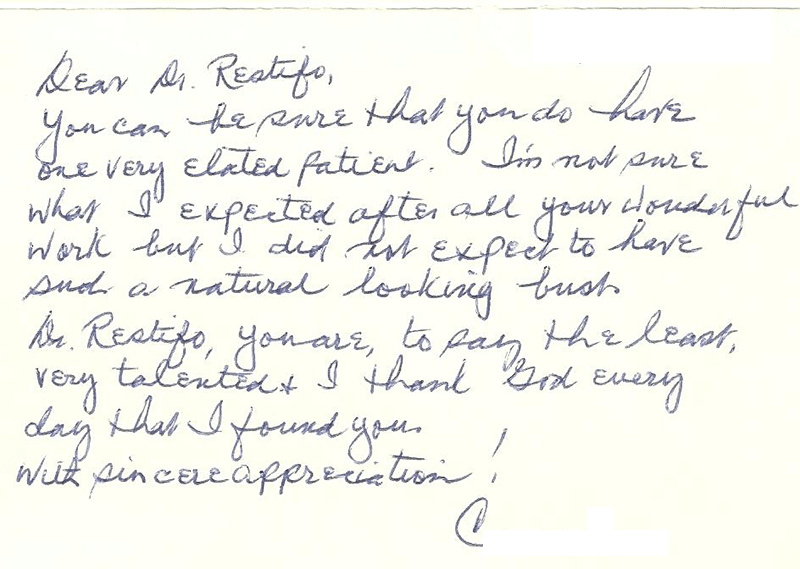 Dear Dr. Restifo,
You can be sure that you do have
one very elated patient. I'm not sure
what I expected after all your wonderful
work but I did not expect to have
such a natural looking bust.
Dr. Restifo, you are, to say the least,
very talented & I thank God every
day that I found you.
With sincere appreciation!
C